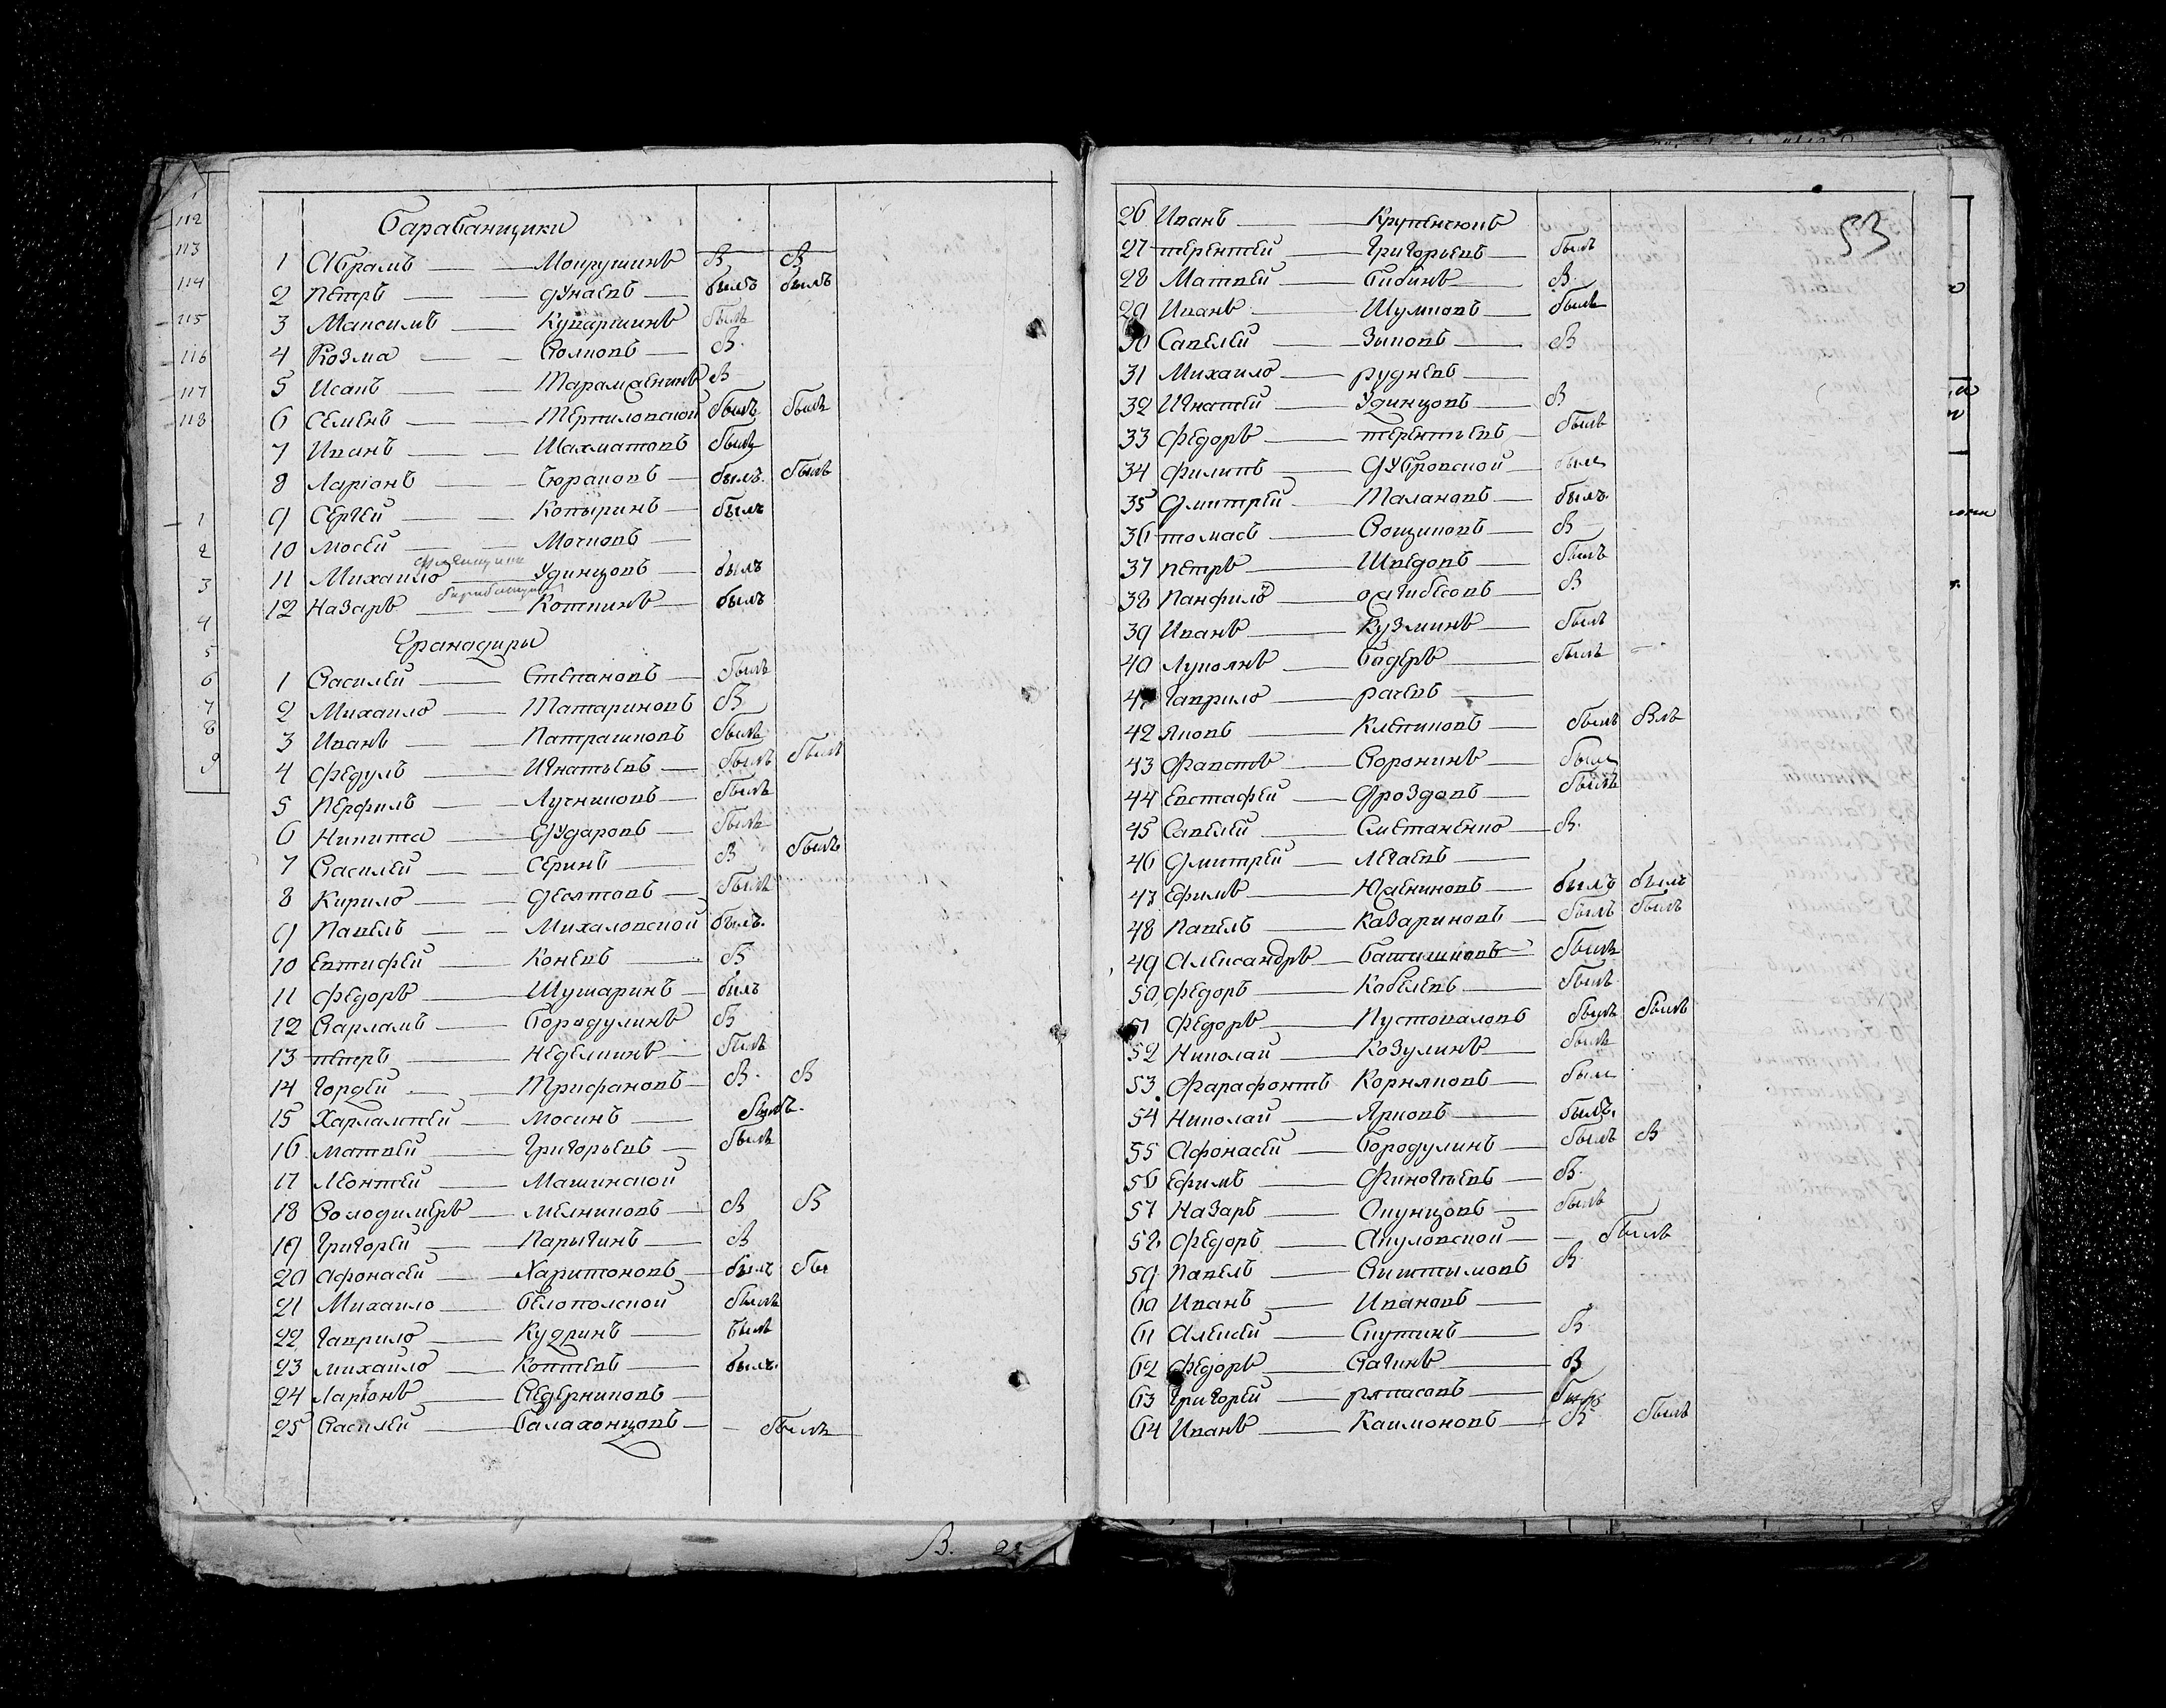 Барабанщики
1 Абрамъ Мокрушинъ В В
2 Петръ дунаевъ былъ былъ
3 Максимъ Купаршинъ былъ
4 Козма Волковъ В
5 Исакъ В
6 Семенъ былъ былъ
7 Иванъ Шахматовъ былъ
8 Ларіонъ Бюраковъ былъ былъ
9 Сергѣй Копыринъ былъ
10 Мосей Мочковъ
11 Михаило Удинцовъ былъ
барабанщикъ
12 Назаръ Коткинъ былъ
Гранодиры
1 Василей Степановъ былъ
2 Михаило Татариновъ В
3 Иванъ Патрашковъ былъ
4 Федулъ Игнатьевъ былъ былъ
5 Перфилъ Лучниковъ былъ
6 Никита Дударовъ былъ
7 Василей Серинъ В былъ
8 Кирило Десятовъ былъ
9 Павелъ Михаловской былъ
10 Евтифей Коневъ В
11 Федоръ Шушаринъ былъ
12 Варламъ Бородулинъ В
13 петръ Неделкинъ былъ
14 Гордей Трифановъ В В
15 Харлампей Мосинъ былъ
16 Матвей Григорьевъ былъ
17 Леонтей Машинской
18 Володимеръ Мелниковъ В В
19 Григорей Парыгинъ В
20 Афонасей Харитоновъ былъ бы
21 Михаило Белополской былъ
22 Гаврило Кудринъ былъ
23 Михаило Коптевъ былъ
24 Ларіонъ Ведерниковъ
25 Василей Балахонцовъ былъ
В. 22
53
26 Иванъ
27 терентей Григорьевъ былъ
28 Матвей Бибинъ В
29 Иванъ Шумковъ былъ
30 Савелей Зыковъ В
31 Михаило рудневъ
32 Игнатей Удинцовъ В
33 Федоръ терентьевъ былъ
34 Филипъ Дубровской былъ
35 Дмитрей Талановъ былъ
36 томасъ Вощиковъ В
37 Петръ Шведовъ былъ
38 Панфило ожгибесовъ В
39 Иванъ Кузминъ былъ
40 Лукоянъ Бадеръ былъ
41 Гаврило рачевъ
42 Яковъ Клепиковъ былъ
43 Фавстъ Воронинъ былъ
44 Евстафей Дроздовъ былъ
45 Савелей Сметаненко В
46 Дмитрей Легаевъ
47 Ефимъ Южениновъ былъ былъ
48 Павелъ Казариновъ былъ былъ
49 Александръ Баташковъ былъ
50 Федоръ Кобелевъ былъ
51 Федоръ Пустоваловъ былъ былъ
52 Николай Козулинъ былъ
53 Фарафонтъ Корняковъ былъ
54 Николай Ярковъ былъ
55 Афонасей Бородулинъ былъ В
56 Ефимъ Финогеевъ В
57 Назаръ Скунцовъ былъ
58 Федоръ Акуловской былъ
59 Павелъ В
60 Иванъ Ивановъ
61 Алексей Скутинъ В
62 Федоръ Вагинъ В
63 Григорей ряпасовъ былъ
64 Иванъ Каимоновъ В былъ
112
113
114
115
116
117
118
1
2
3
4
5
6
7
8
9